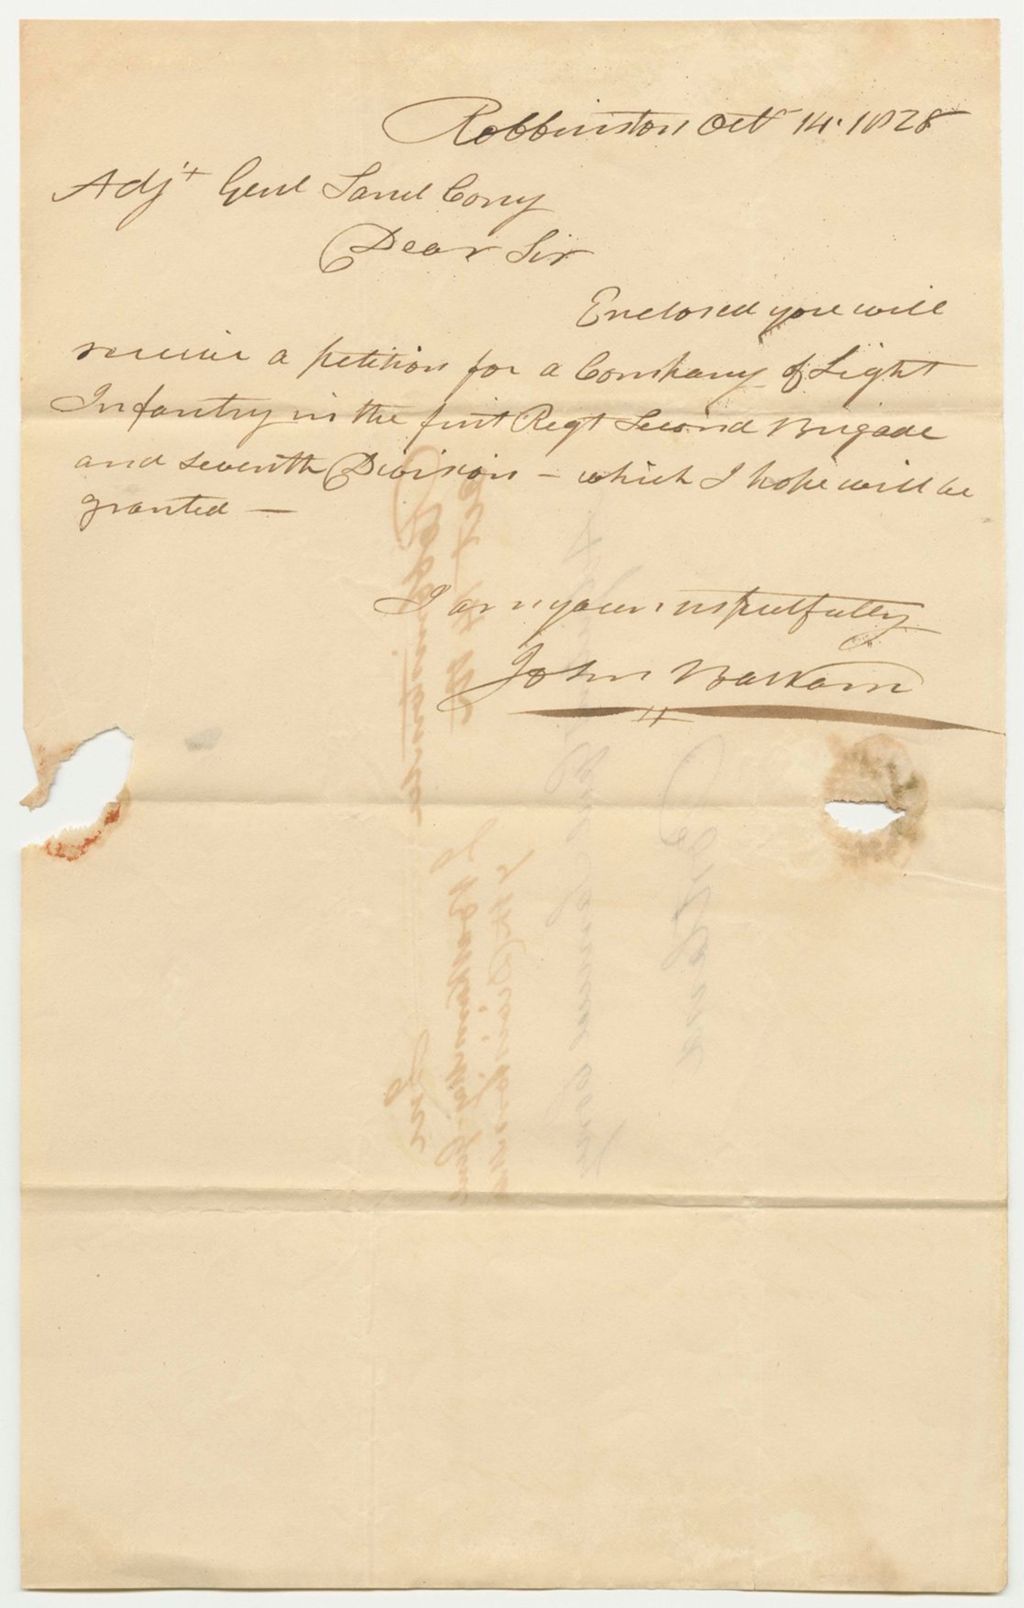 Robbinston Oct 14. 1828
Adjt Genl Saml Cony
Dear Sir
Enclosed you will
receive a petition for a Company of Light
Infantry in the first Regt Second Brigade
and seventh Division - which I hope will be
granted —
I am yours respectfully
John Balkam